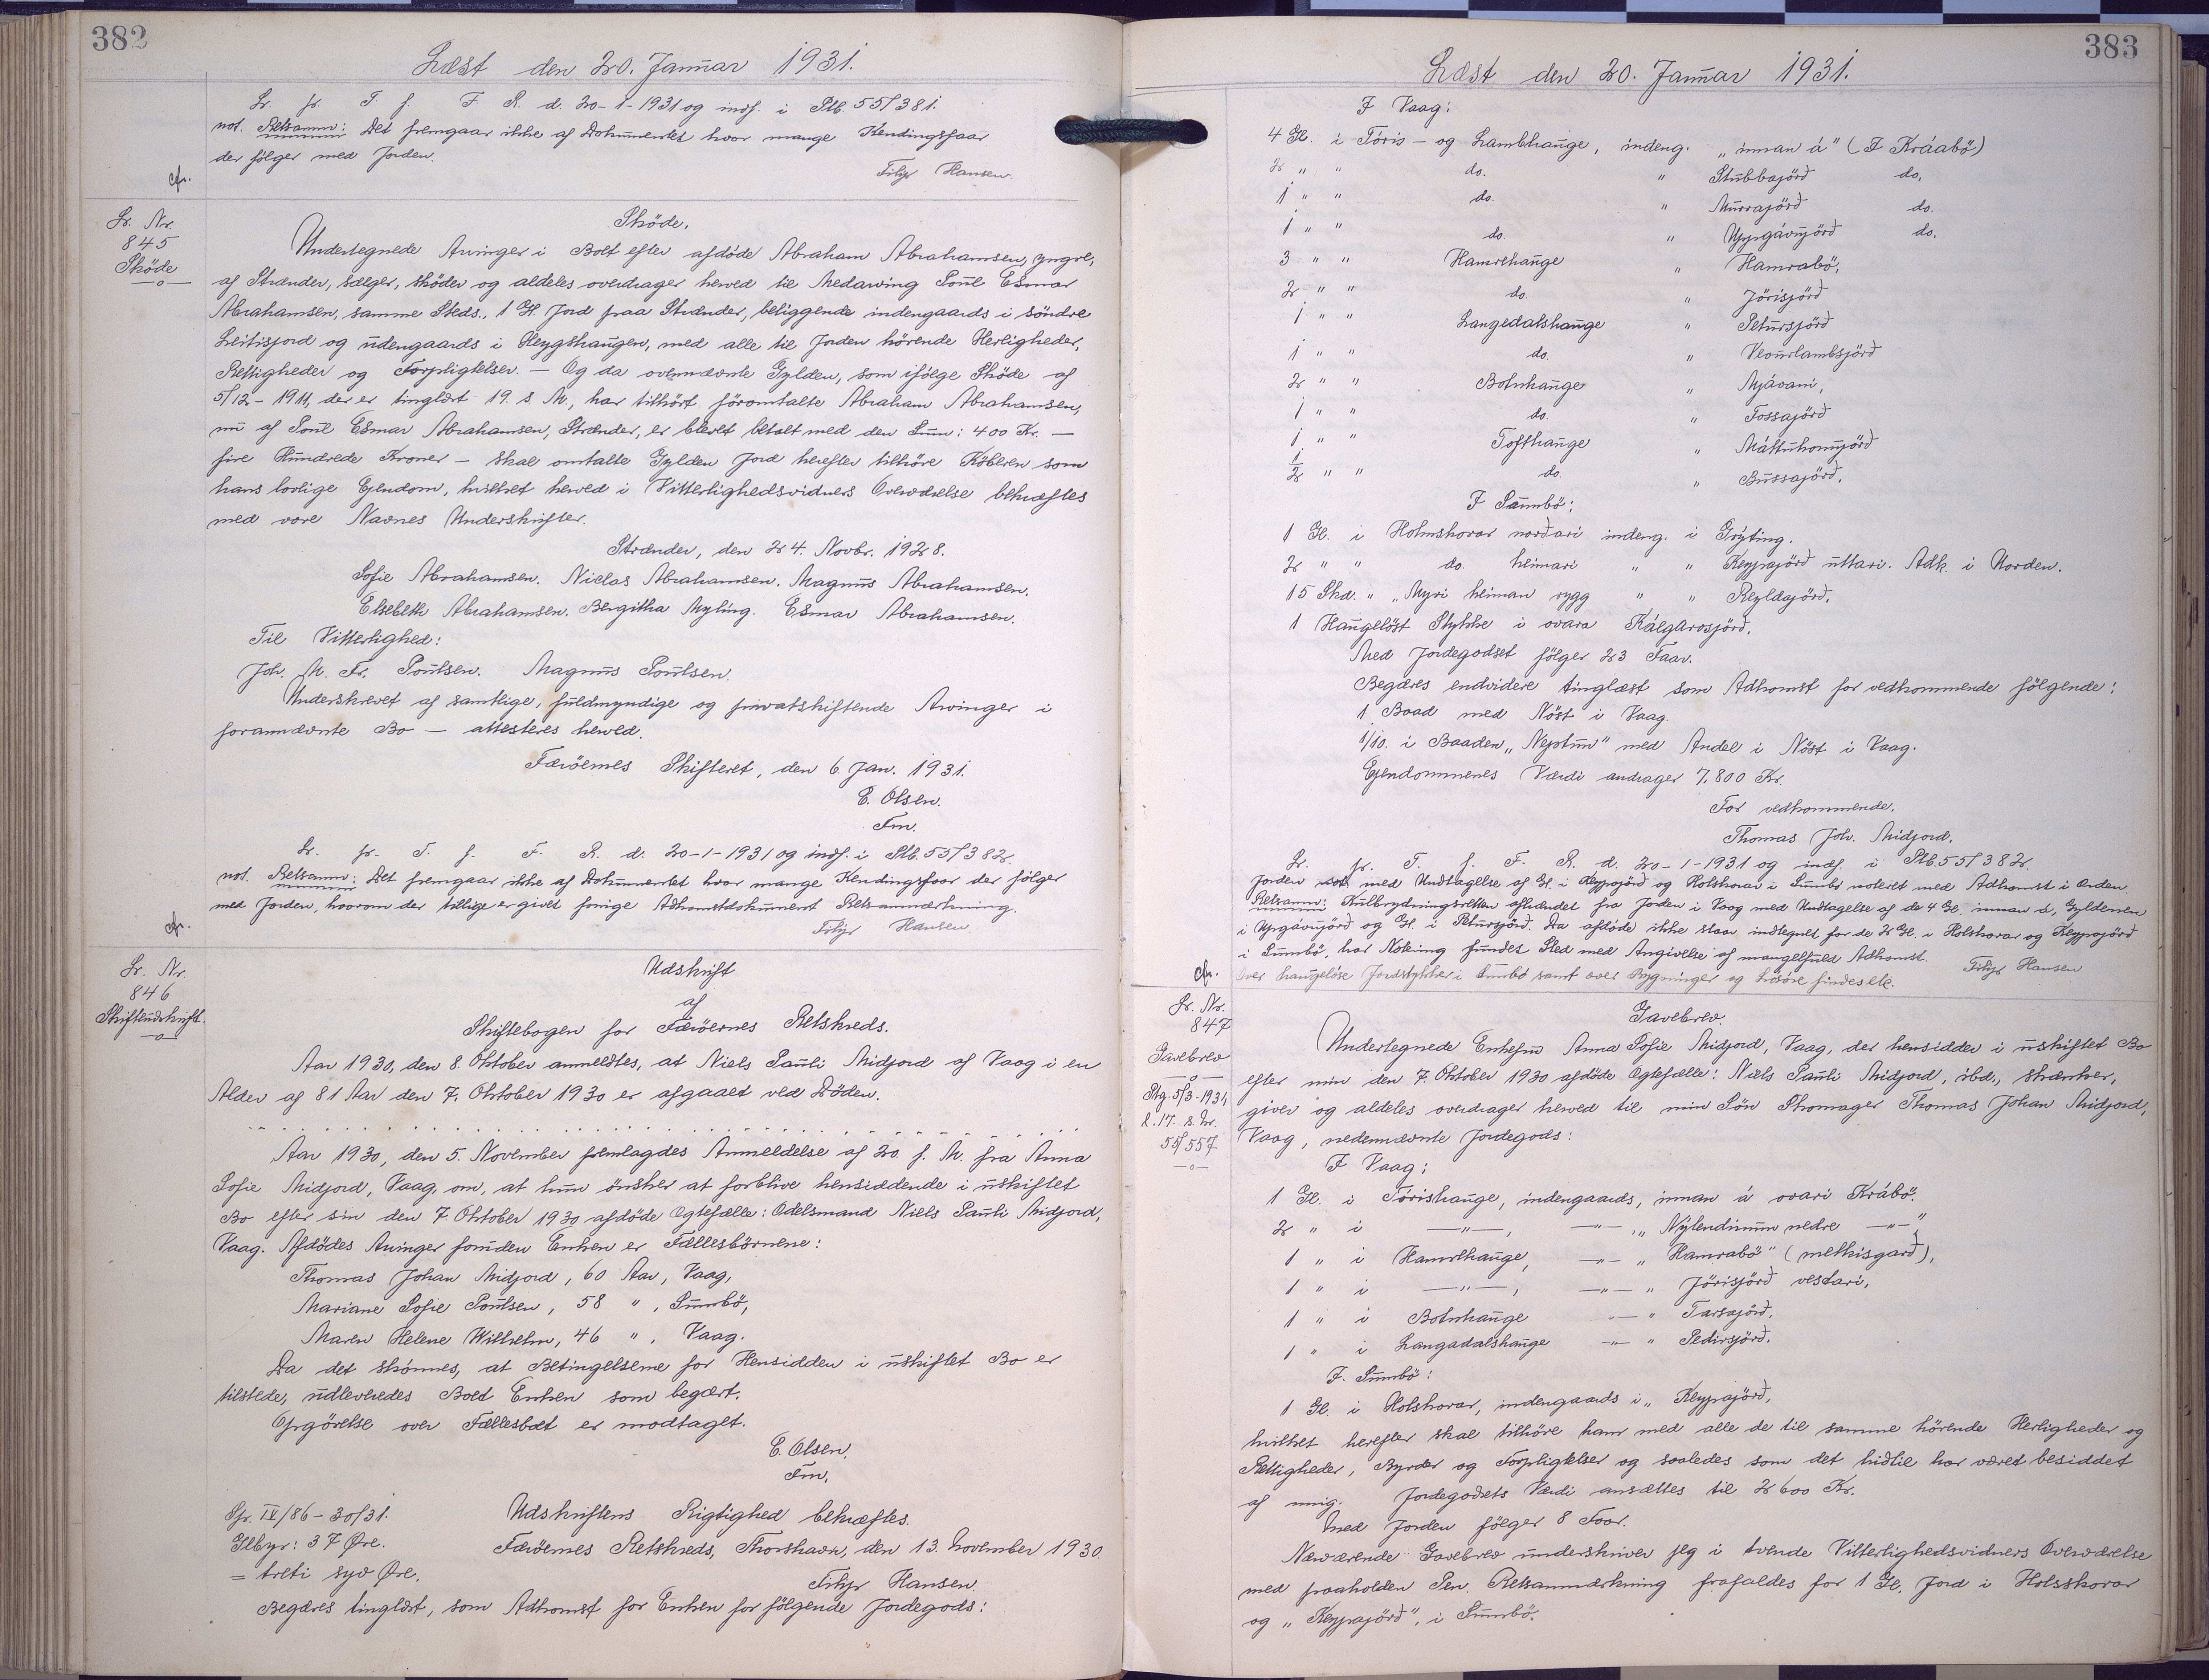 382
Læst den 20. Januar 1931.
Lr. fr. T. f. F. R. d. 20-1-1931 og indf. i Ptb. 55/381.
not. Retsanm: Det fremgaar ikke af Dokumentet hvor mange Kendingsfaar
der følger med Jorden.
Filip Hansen.
cfr.
Lr. Nr.
845
Sköde
Sköde.
Undertegnede Arvinger i Boet efter afdöde Abraham Abrahamsen, yngre,
af Strænder, sælger, sköder og aldeles overdrager herved til Medarving Poul Esmar
Abrahamsen, samme Steds, 1 Gl. Jord paa Strænder, beliggende indengaards i söndre
Leitisjord og udengaards i Heygshaugen, med alle til Jorden hörende Herligheder,
Rettigheder og Forpligtelser. — Og da ovennævnte Gylden, som ifölge Sköde af
5/12-1911, der er tinglæst 19. s M., har tilhört föromtalte Abraham Abrahamsen,
nu af Poul Esmar Abrahamsen, Strænder, er blevet betalt med den Sum: 400 Kr. —
fire Hundrede Kroner — skal omtalte Gylden Jord herefter tilhöre Köberen som
hans lovlige Ejendom, hvilket herved i Vitterlighedsvidners Overværelse bekræftes
med vore Navnes Underskrifter.
Strænder, den 24. Novbr. 1928.
Sofie Abrahamsen. Niclas Abrahamsen. Magnus Abrahamsen.
Elsebeth Abrahamsen. Bergitha Myling. Esmar Abrahamsen.
Til Vitterlighed:
Joh. M. Fr. Poulsen. Magnus Poulsen.
Underskrevet af samtlige, fuldmyndige og privatskiftende Arvinger i
forannævnte Bo — attesteres herved.
Færöernes Skifteret, den 6. Jan. 1931.
E. Olsen.
Fm.
Lr. fr. T. f. F. R. d. 20-1-1931 og indf. i Ptb. 55/382.
not. Retsanm: Det fremgaar ikke af Dokumentet hvor mange Kendingsfaar der følger
med Jorden, hvorom der tillige er givet forrige Adkomstdokument Retsanmærkning.
Filip Hansen.
cfr.
Lr. Nr.
846
Skifteudskrift.
Udskrift
af
Skiftebogen for Færöernes Retskreds.
Aar 1930, den 8. Oktober anmeldtes, at Niels Pauli Midjord af Vaag i en
Alder af 81 Aar den 7. Oktober 1930 er afgaaet ved Döden.
Aar 1930, den 5. November fremlagdes Anmeldelse af 20. f. M. fra Anna
Sofie Midjord, Vaag, om, at hun önsker at forblive hensiddende i uskiftet
Bo efter sin den 7. Oktober 1930 afdöde Ægtefælle: Odelsmand Niels Pauli Midjord,
Vaag. Afdödes Arvinger foruden Enken er Fællesbörnene:
Thomas Johan Midjord, 60 Aar, Vaag,
Mariane Sofie Poulsen, 58 ", Sumbö,
Maren Helene Wilhelm, 46 ", Vaag.
Da det skönnes, at Betingelserne for Hensidden i uskiftet Bo er
tilstede, udleveredes Boet Enken som begært.
Opgörelse over Fællesboet er modtaget.
E. Olsen.
Fm.
Spr. IV/86-30/31.
Glbyr: 37 Øre.
= treti syv Øre.
Udskriftens Rigtighed bekræftes.
Færöernes Retskreds, Thorshavn, den 13. November 1930.
Filip Hansen.
Begæres tinglæst, som Adkomst for Enken for følgende Jordegods:
383
Læst den 20. Januar 1931.
I Vaag:
4 Gl. i Tóris- og Lambhauge, indeng. "innan á" (I Kráabö)
2 " " do. " Stubbajörð do.
1 " " do. " Murrajörð do.
1 " " do. " Uppgávujörð do.
3 " " Hamrehauge " Hamrabö,
2 " " do. " Jórisjörð
1 " " Langedalshauge " Petursjörð
1 " " do. " Veourlambsjörð
2 " " Botnhauge " Mjávani,
1 " " do. " Fossajörð
1 " " Tofthauge " Máttuhomjörð
1/2 " " do. " Bussajörð.
I Sumbö:
1 Gl. i Holmshorar norðari indeng. i Grýting.
2 " " do. heimari " " Keyprajörð uttari. Adk. i Orden.
15 Skd. " " Myri heiman rygg " " Reyldajörð.
1 Haugelöst Stykke i ovara Kálgarosjörð.
Med Jordegodset fölger 23 Faar.
Begæres endvidere tinglæst som Adkomst for vedkommende fölgende:
1 Baad med Nöst i Vaag.
1/10. i Baaden "Neptun" med Andel i Nöst i Vaag.
Ejendommenes Værdi andrager 7.800 Kr.
For vedkommende.
Thomas Joh. Midjord.
Lr. fr. T. f. F. R. d. 20-1-1931 og indf. i Ptb. 55/382.
Jorden not. med Undtagelse af Gl. i Keyprajörð og Holshorar i Sumbö noteret med Adkomst i Orden.
Retsanm: Kulbrydningsretten afhændet fra Jorden i Vaag med Undtagelse af de 4 Gl. innan á, Gyldenen
i Uppgávujörð og Gl. i Petursjörð. Da afdöde ikke staar indtegnet for de 2 Gl. i Holshorar og Keyprajörð
i Sumbö, har Notering fundet Sted med Angivelse af mangelfuld Adkomst. Filip Hansen
Over haugelöse Jordstykker i Sumbö samt over Bygninger og Lösöre findes etc.
cfr.
Lr. Nr.
847
Gavebrev
Rtg. 5/3-1931
l. 17. s. M.
55/557
Gavebrev.
Undertegnede Enkefru Anna Sofie Midjord, Vaag, der hensidder i uskiftet Bo
efter min den 7. Oktober 1930 afdöde Ægtefælle: Niels Pauli Midjord, ibd., skænker,
giver og aldeles overdrager herved til min Sön Skomager Thomas Johan Midjord,
Vaag, nedennævnte Jordegods:
I Vaag:
1 Gl. i Tórishauge, indengaards, innan á ovari Krábö.
2 " i —"—, —"— " Nýlendinum nedre —"—"
1 " i Hamrehauge, —"— " Hamrabö" (melkisgarð),
1 " i —"—, —"— " Jórisjörð vestari,
1 " i Botnhauge —"— " Tarsajörð,
1 " i Langadalshauge —"— " Pedirsjörð.
I Sumbö:
1 Gl. i Holshorar, indengaards i "Keyprajörð,
hvilket herefter skal tilhöre ham med alle de til samme hörende Herligheder og
Rettigheder, Byrder og Forpligtelser og saaledes som det hidtil har været besiddet
af mig. Jordegodsets Værdi ansættes til 2600 Kr.
Med Jorden fölger 8 Faar.
Nærværende Gavebrev underskriver jeg i tvende Vitterlighedsvidners Overværelse
med paaholden Pen. Retsanmærkning frafaldes for 1 Gl. Jord i Holsshorar
og "Keyprajörð", i Sumbö.